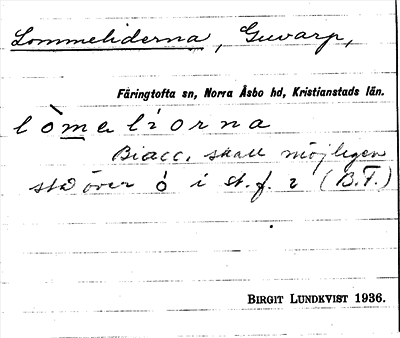 Lommeliderna, Guvarp,
Färingtofta sn, Norra Åsbo hd, Kristianstads län.
l ò m e l i o r n a
Biacc. skall möjligen
stå över ó i st. f. ı (B.T.)
BIRGIT LUNDKVIST 1936.